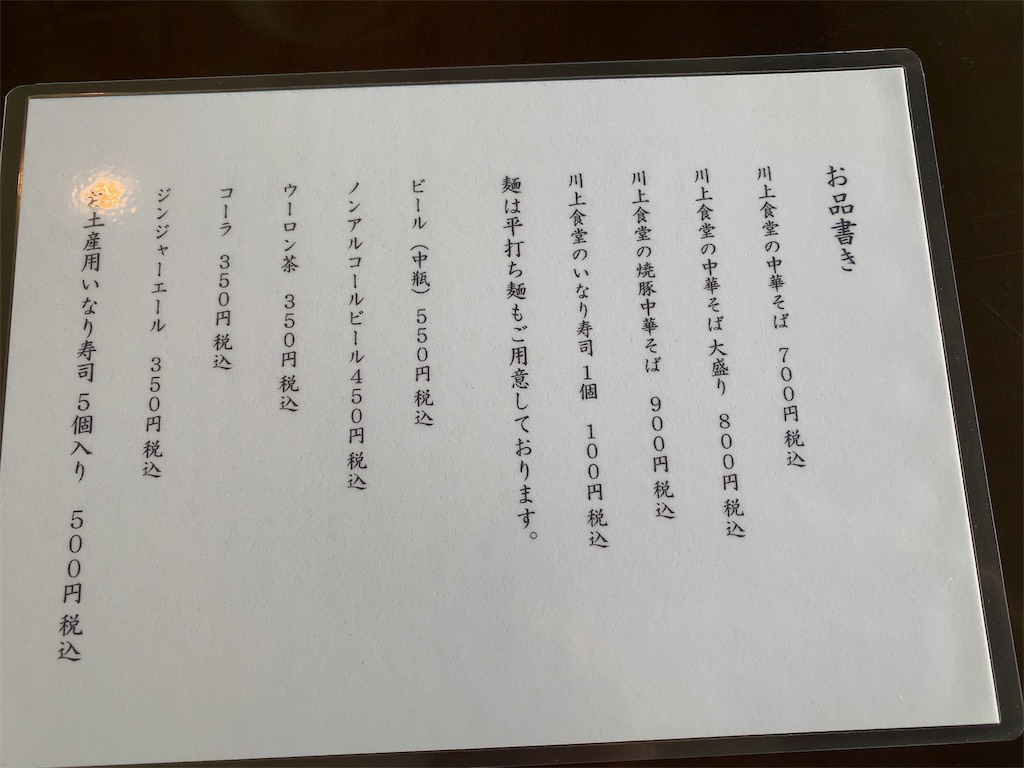 お品書き
川上食堂の中華そば　７００円 税込
川上食堂の中華そば 大盛り　８００円 税込
川上食堂の焼豚中華そば　９００円 税込
川上食堂のいなり寿司 １個　１００円 税込
麺は平打ち麺もご用意しております。
ビール（中瓶）５５０円 税込
ノンアルコールビール４５０円 税込
ウーロン茶　３５０円 税込
コーラ　３５０円 税込
ジンジャーエール　３５０円 税込
お土産用いなり寿司 ５個入り　５００円 税込